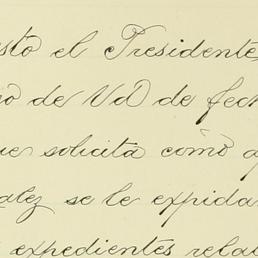 esto el Presidente,
io de Vd de fech
ue solicita como a
alez se le expida
expedientes rela